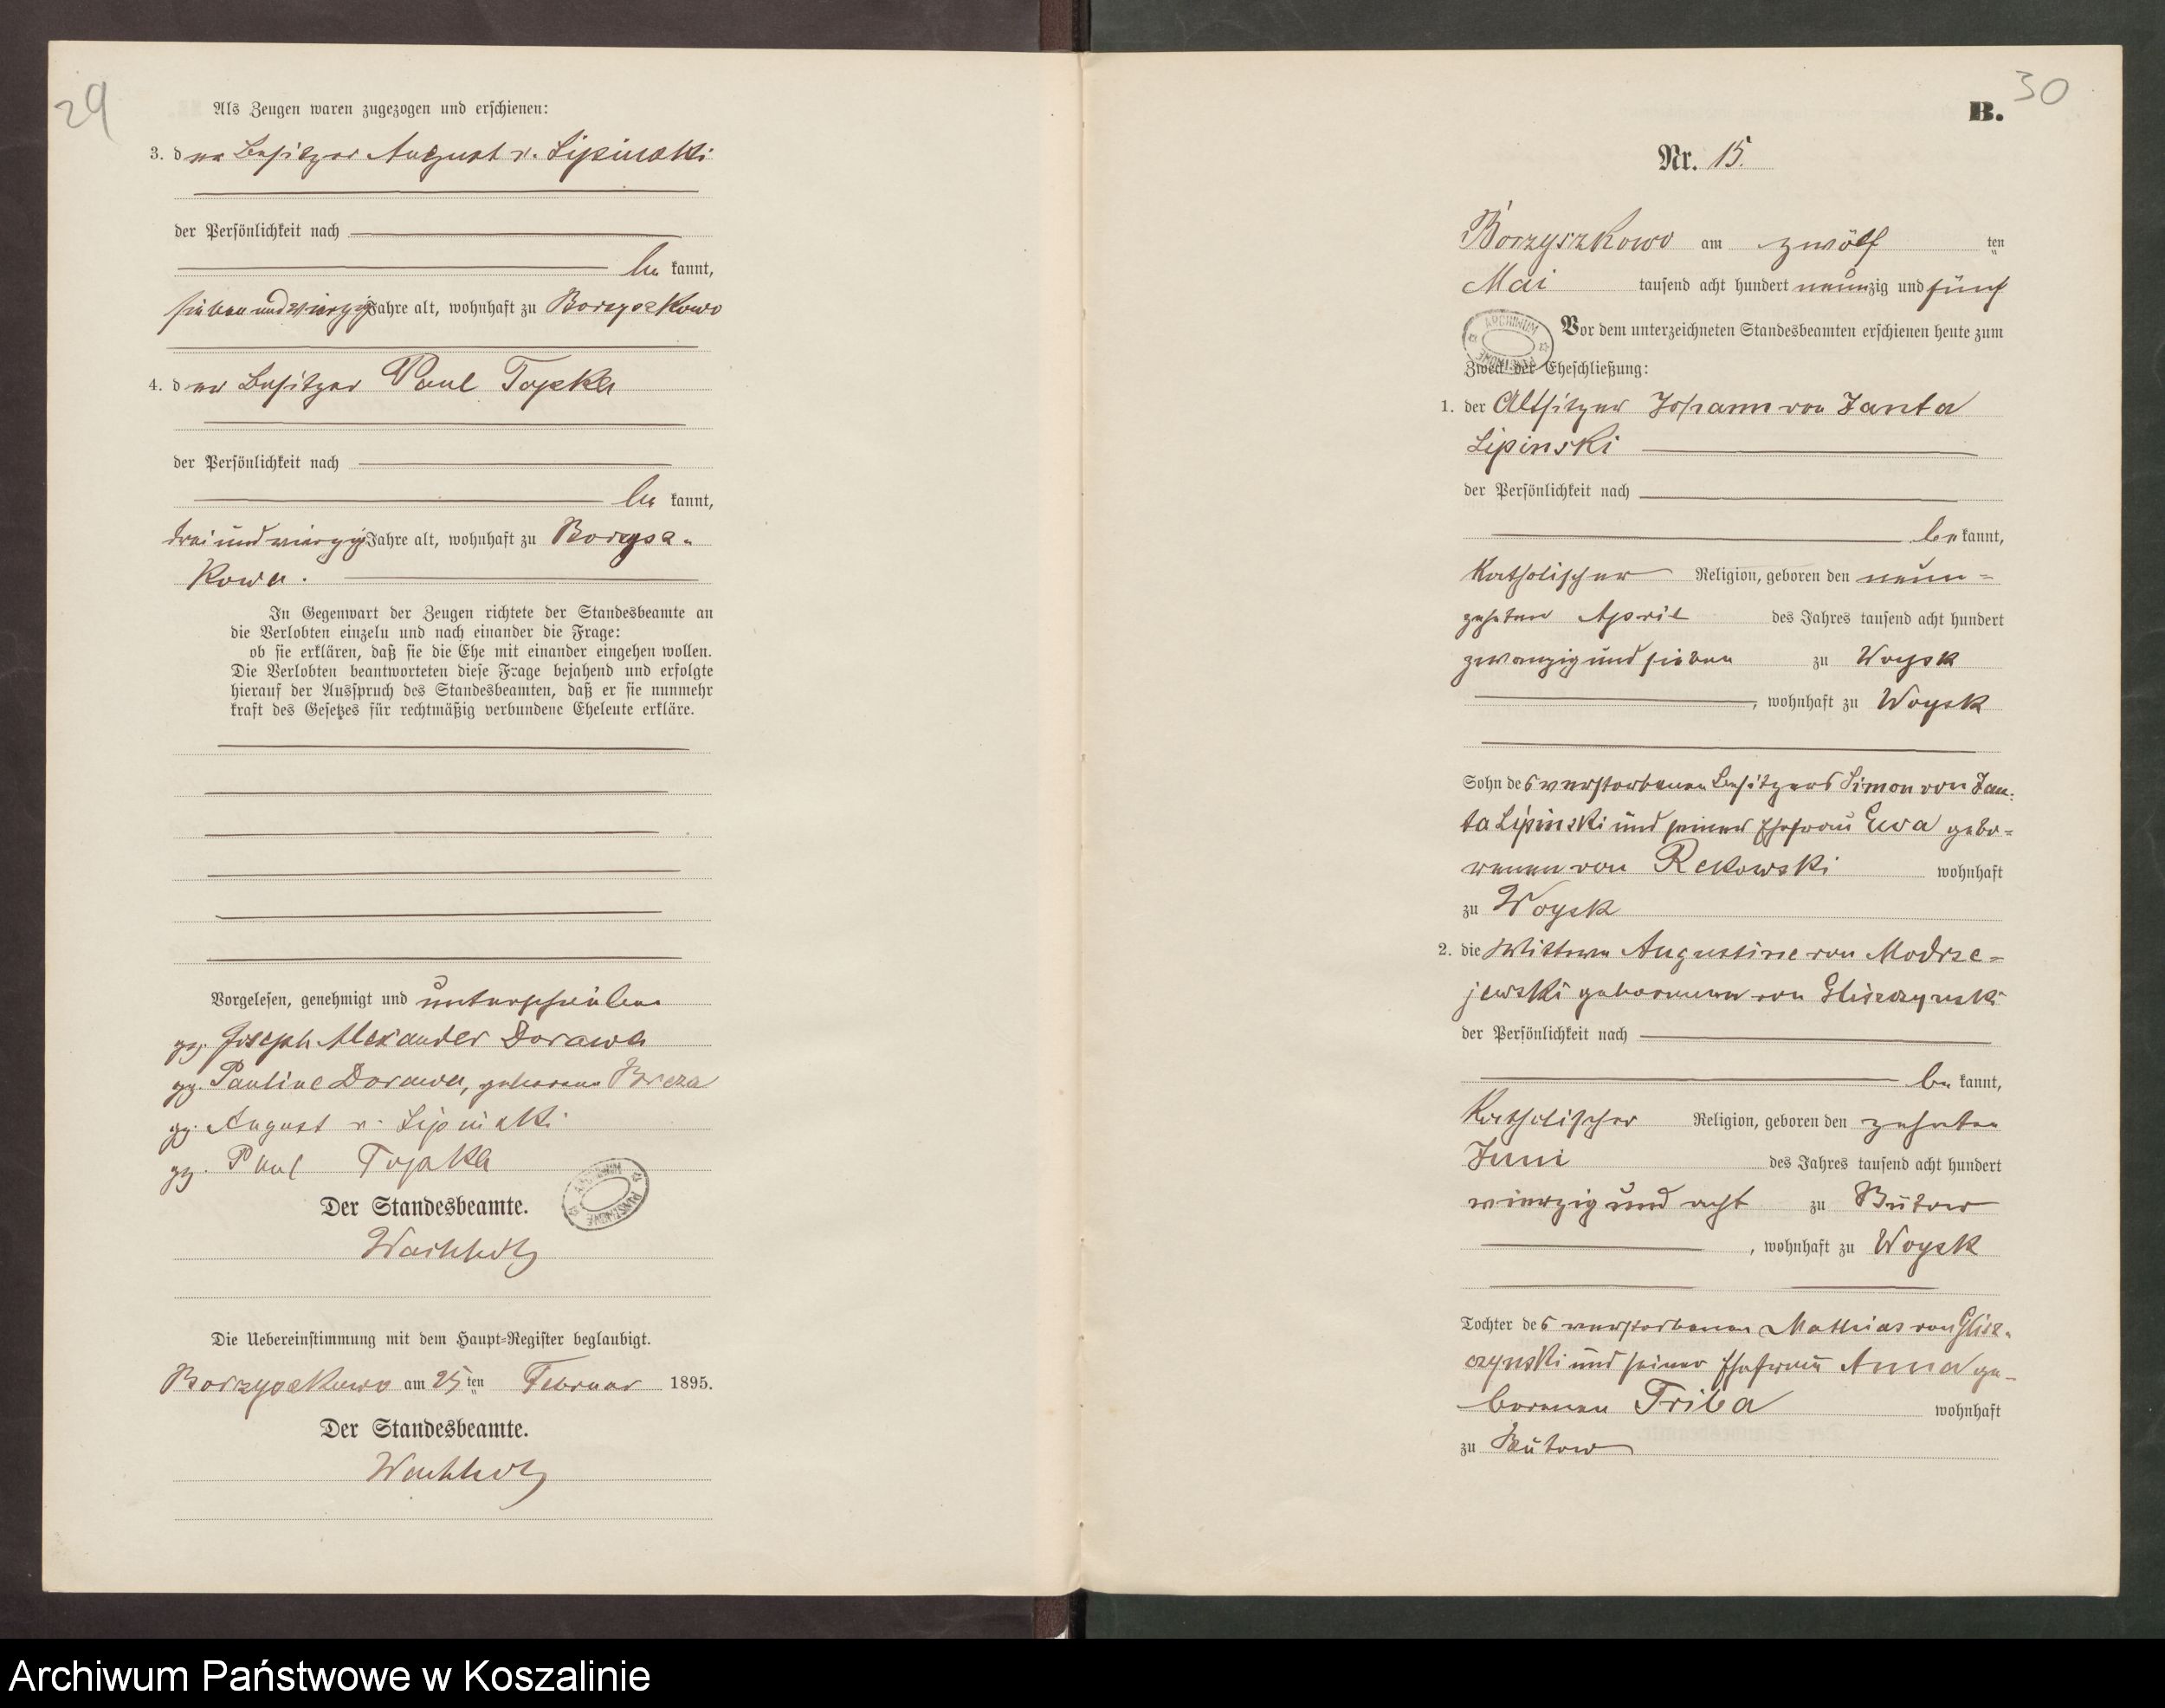 29
Als Zeugen waren zugezogen und erschienen:
3. der Besitzer August v. Lipinski
der Persönlichkeit nach
be kannt,
siebenundvierzig Jahre alt, wohnhaft zu Borzyszkowo
4. der Besitzer Paul Topka
der Persönlichkeit nach
be kannt,
dreiundvierzig Jahre alt, wohnhaft zu Borzysz-
kowo.
In Gegenwart der Zeugen richtete der Standesbeamte an
die Verlobten einzeln und nach einander die Frage:
ob sie erklären, daß sie die Ehe mit einander eingehen wollen.
Die Verlobten beantworteten diese Frage bejahend und erfolgte
hierauf der Ausspruch des Standesbeamten, daß er sie nunmehr
kraft des Gesetzes für rechtmäßig verbundene Eheleute erkläre.
Vorgelesen, genehmigt und unterschrieben
gez. Joseph Alexander Dorawa
gez. Pauline Dorawa, geborene Breza
gez. August v. Lipinski
gez. Paul Topka
Der Standesbeamte.
Wachholz
Die Uebereinstimmung mit dem Haupt-Register beglaubigt.
Borzyszkowo am 25 ten Februar 1895.
Der Standesbeamte.
Wachholz
30
B.
Nr. 15.
Borzyszkowo am zwölf ten
Mai tausend acht hundert neunzig und fünf
Vor dem unterzeichneten Standesbeamten erschienen heute zum
Zweck der Eheschließung:
1. der Altsitzer Johann von Janta
Lipinski
der Persönlichkeit nach
be kannt,
katholischer Religion, geboren den neun=
zehnten April des Jahres tausend acht hundert
zwanzig und sieben zu Woysk
, wohnhaft zu Woysk
Sohn des verstorbenen Besitzers Simon von Jan-
ta Lipinski und seiner Ehefrau Ewa gebo=
renen von Rekowski wohnhaft
zu Woysk
2. die Wittwe Augustine von Modrze=
jewski geborenen von Gliszczynski
der Persönlichkeit nach
be kannt,
katholischer Religion, geboren den zehnten
Juni des Jahres tausend acht hundert
vierzig und acht zu Bütow
, wohnhaft zu Woysk
Tochter des verstorbenen Mathias von Glisz-
czynski und seiner Ehefrau Anna ge-
borenen Triba wohnhaft
zu Bütow
Archiwum Państwowe w Koszalinie